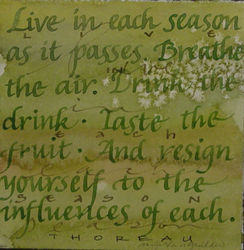 Live in each season
as it passes. Breathe
the air. Drink the
drink. Taste the
fruit. And resign
yourself to the
influences of each.
THOREAU